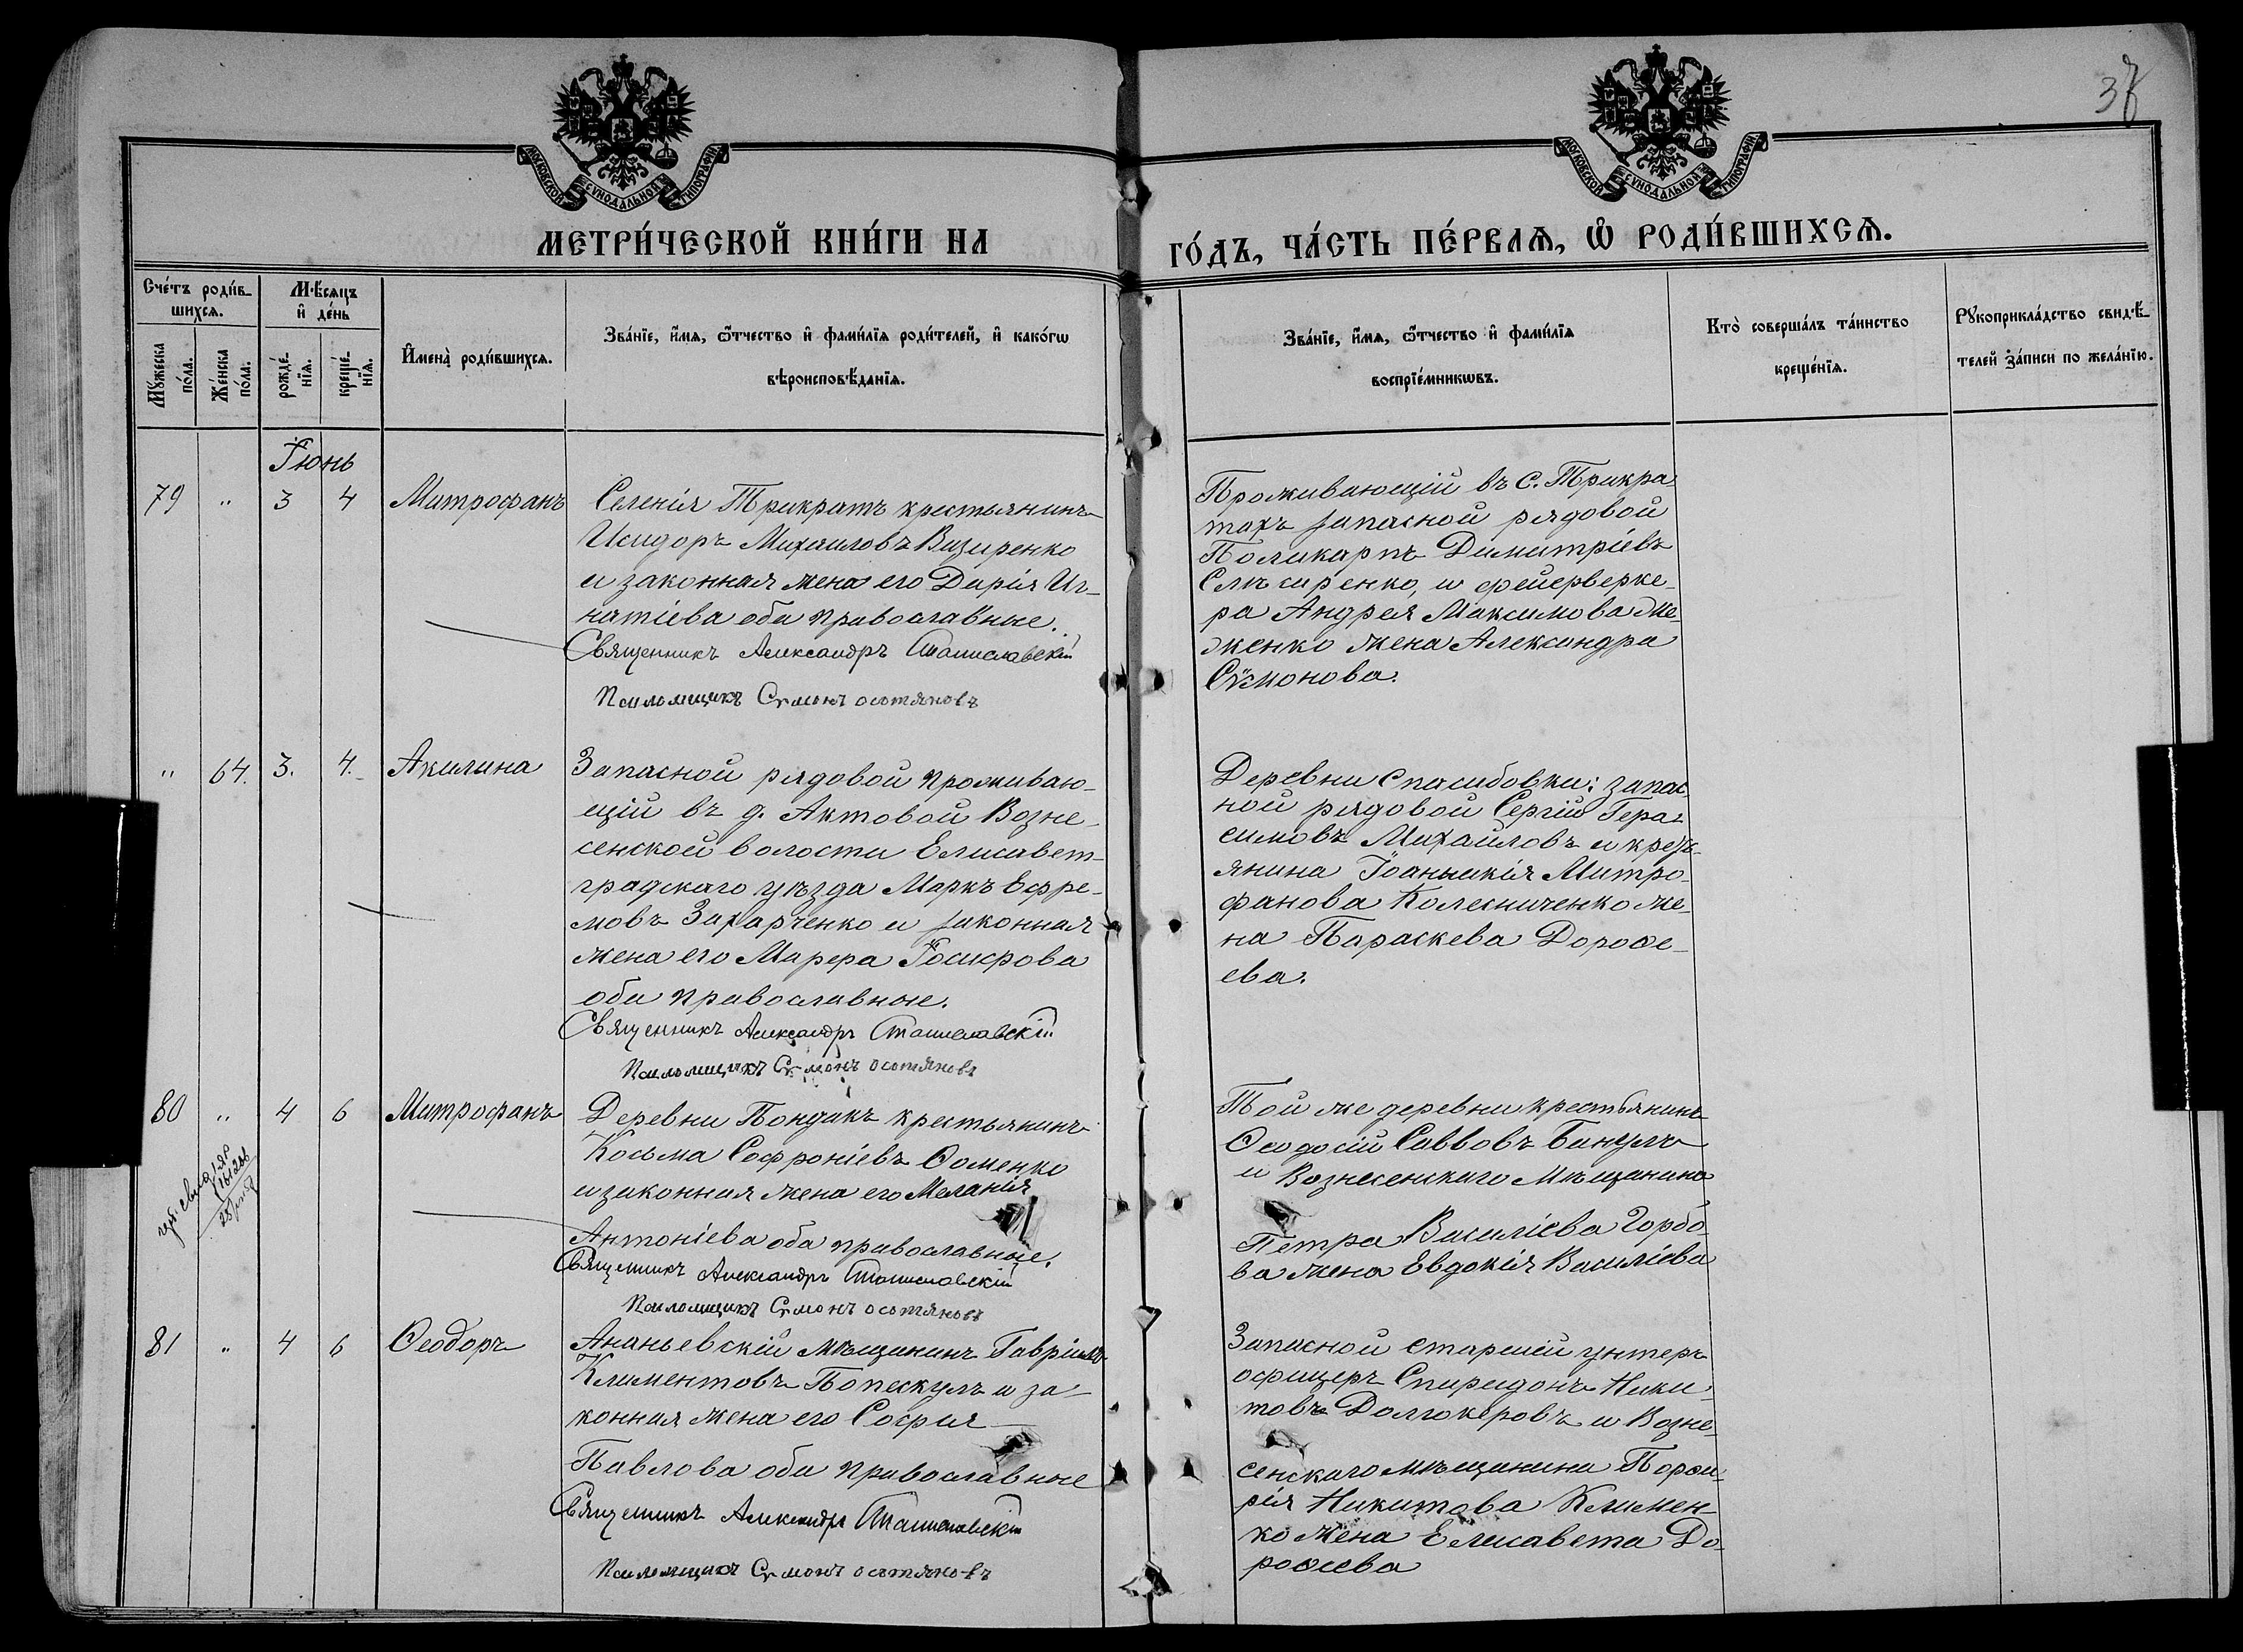 37
МОСКОВСКОЙ СУНОДАЛЬНОЙ ТИПОГРАФІИ
МОСКОВСКОЙ СУНОДАЛЬНОЙ ТИПОГРАФІИ
МЕТРИ́ЧЕСКОЙ КНИ́ГИ НА
ГО́ДЪ, ЧА́СТЬ ПЕ́РВАѦ, Ѽ РОДИ́ВШИХСѦ.
Сче́тъ роди́в-
шихсѧ.
Мꙋ́жеска
по́ла.
Же́нска
по́ла.
Мѣ́сѧцъ
и҆ де́нь
рожде́-
нїѧ.
креще́-
нїѧ.
И҆мена̀ роди́вшихсѧ.
Зва́нїе, и҆́мѧ, ѻ҆́тчество и҆ фами́лїѧ роди́телей, и҆ како́гѡ
вѣроисповѣ́данїѧ.
Зва́нїе, и҆́мѧ, ѻ҆́тчество и҆ фами́лїѧ
воспрїе́мникѡвъ.
Кто̀ соверша́лъ та́инство
креще́нїѧ.
Рꙋкоприкла́дство свидѣ́-
телей за́писи по жела́нїю.
Іюнь
79 " 3 4 Митрофанъ
Селенія Трикратъ крестьянинъ
Исидоръ Михаиловъ Визиренко
и законная жена его Дарія Иг-
натіева оба православные.
Священникъ Александръ Станиславскій
Псаломщикъ Сумонъ Осотяновъ
Проживающій въ с. Трикра-
тахъ запасной рядовой
Поликарпъ Димитріевъ
Слюсаренко, и фейерверке-
ра Андрея Максимова Ме-
женко жена Александра
Сумонова.
" 64. 3. 4. Акилина
Запасной рядовой проживаю-
щій въ д. Актовой Возне-
сенской волости Елисавет-
градскаго уѣзда Маркъ Ефре-
мовъ Захарченко и законная
жена его Марфа Іосифова
оба православные.
Священникъ Александръ Станиславскій
Псаломщикъ Сумонъ Осотяновъ
Деревни Спасибовки: запас-
ной рядовой Сергій Гера-
симовъ Михайловъ и крест-
янина Іоанникія Митро-
фанова Колесниченко же-
на Параскева Дороѳе-
ева.
80 " 4 6 Митрофанъ
Деревни Бондакъ крестьянинъ
Косьма Софроніевъ Ѳоменко
и законная жена его Меланія
Антоніева оба православные.
Священникъ Александръ Станиславскій
Псаломщикъ Сумонъ Осотяновъ
Той же деревни крестьянинъ
Ѳеодосій Саввовъ Банулъ
и Вознесенскаго мѣщанина
Петра Василіева Горбо-
ва жена Евдокія Василіева
81 " 4 6 Ѳеодоръ
Ананьевскій мѣщанинъ Гавріилъ
Климентовъ Попескулъ и за-
конная жена его Софія
Павлова оба православные
Священникъ Александръ Станиславскій
Псаломщикъ Сумонъ Осотяновъ
Запасной старшій унтеръ
офицеръ Спиридонъ Ники-
товъ Долгокеровъ и Возне-
сенскаго мѣщанина Порфи-
рія Никитова Климен-
ко жена Елисавета До-
роѳеева